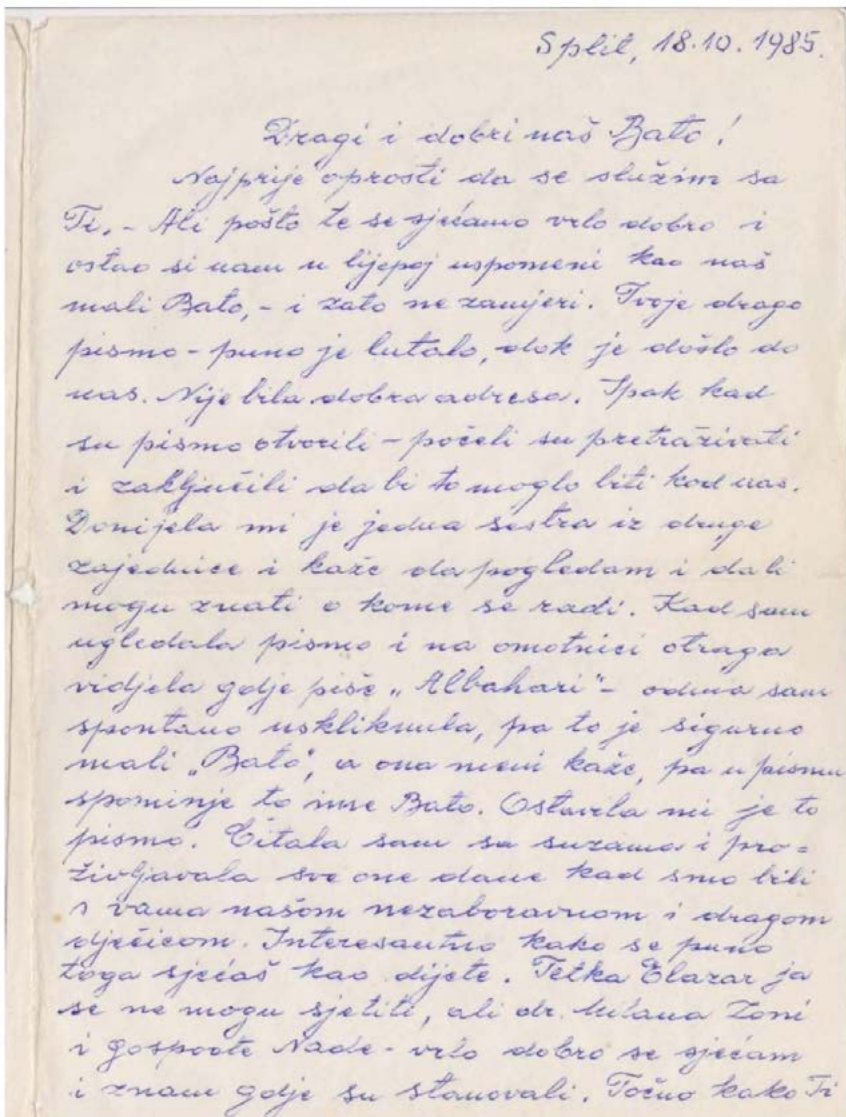 Split, 18.10.1985.
Dragi i dobri naš Bato!
Najprije oprosti da se služim sa
Ti. - Ali pošto te se sjećamo vrlo dobro i
ostao si nam u lijepoj uspomeni kao naš
mali Bato, - i zato ne zamjeri. Tvoje drago
pismo - puno je lutalo, dok je došlo do
nas. Nije bila dobra adresa. Ipak kad
su pismo otvorili - počeli su pretraživati
i zaključili da bi to moglo biti kod nas.
Donijela mi je jedna sestra iz druge
zajednice i kaže da pogledam i da li
mogu znati o kome se radi. Kad sam
ugledala pismo i na omotnici otraga
vidjela gdje piše „Albahari" - odma sam
spontano uskliknula, pa to je sigurno
mali „Bato", a ona meni kaže, pa u pismu
spominje to ime Bato. Ostavila mi je to
pismo. Čitala sam sa suzama i pro=
življavala sve one dane kad smo bili
s vama našom nezaboravnom i dragom
dječicom. Interesantno kako se puno
toga sjećaš kao dijete. Tetka Elazar ja
se ne mogu sjetiti, ali dr. Milana Zoni
i gospođe Nade - vrlo dobro se sjećam
i znam gdje su stanovali. Točno kako Ti